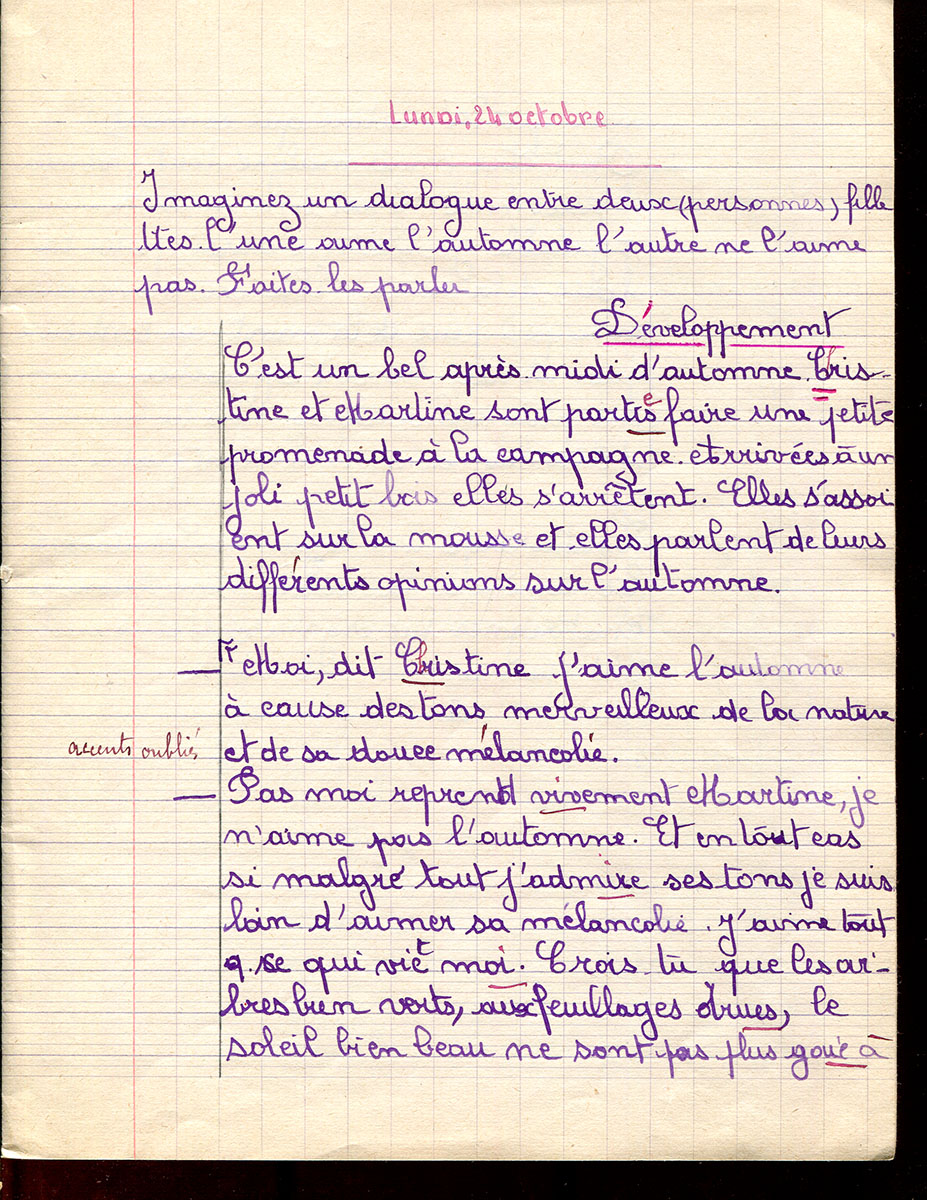 Lundi, 24 octobre
Imaginez un dialogue entre deux (personnes) fille
ttes. l'une aime l'automne l'autre ne l'aime
pas. Faites les parler
Développement
C'est un bel après midi d'automne. Chris-
tine et Martine sont parties faire une petite
promenade à la campagne. Arrivées à un
joli petit bois elles s'arrêtent. Elles s'assoi
ent sur la mousse et elles parlent de leurs
différents opinions sur l'automne.
— Moi, dit Christine j'aime l'automne
à cause des tons merveilleux de la nature
accents oubliés et de sa douce mélancolie.
— Pas moi reprend vivement Martine, je
n'aime pas l'automne. Et en tout cas
si malgré tout j'admire ses tons je suis
loin d'aimer sa mélancolie. J'aime tout
ce qui vit moi. Crois tu que les ar-
bres bien verts, aux feuillages drues, le
soleil bien beau ne sont pas plus à